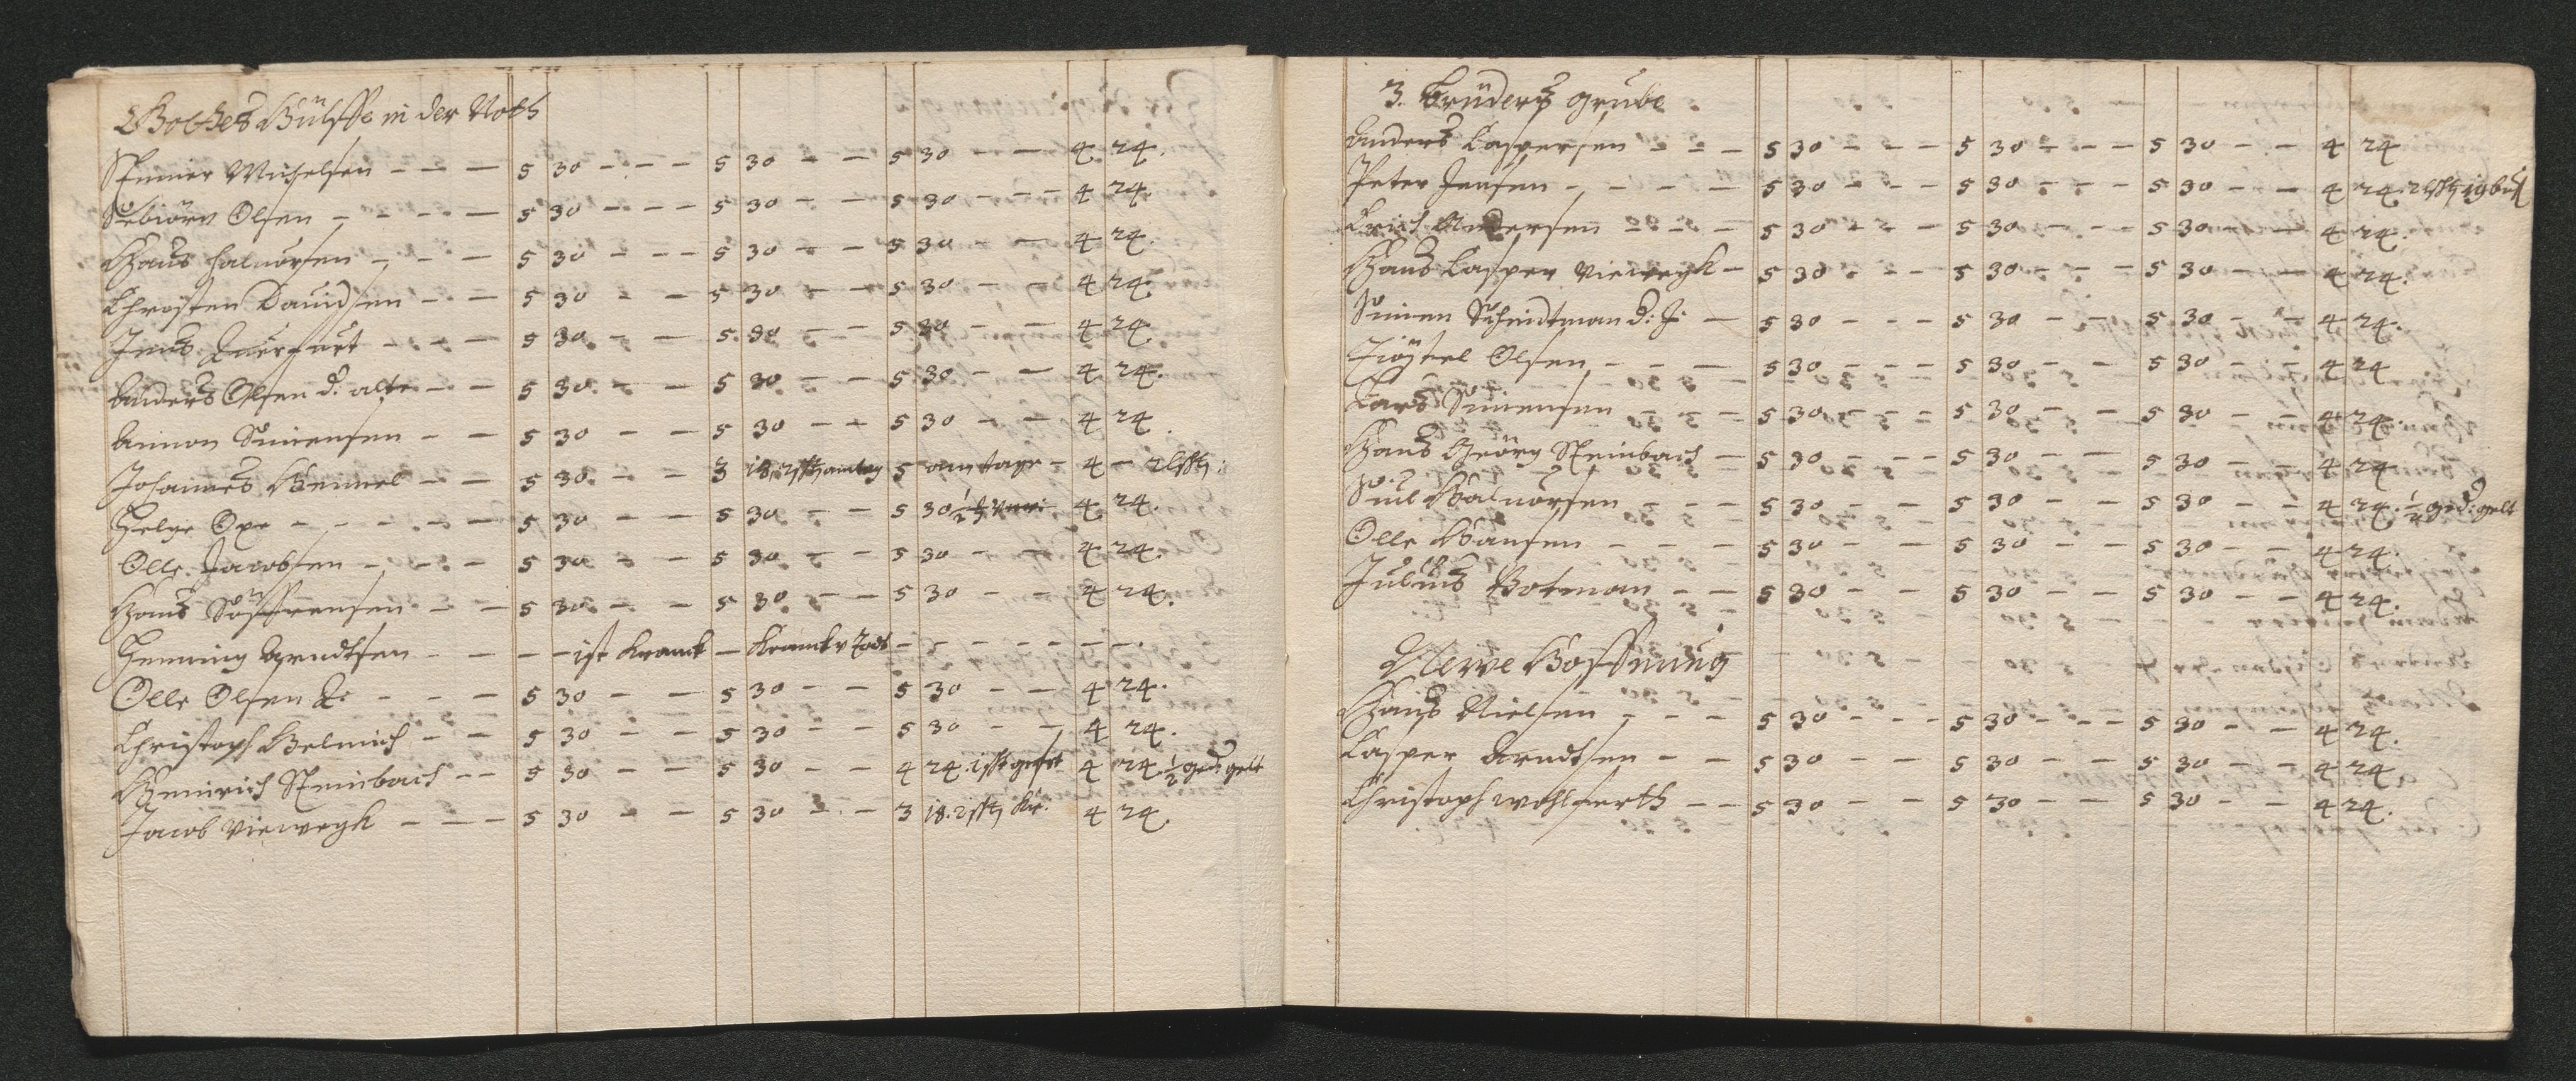 Gottes Hülffe in der Noth
Steiner Michelsen - - - 5 30 - - - 5 30 - - 5 30 - - 4 24.
Sebiörn Olsen - - - - 5 30 - - - 5 30 - - 5 30 - - - 4 24.
Hans Haluorsen - - - 5 30 - - - 5 30 - - 5 30 - - 4 24.
Christen Dauidsen - - 5 30 - - 5 30 - - 5 30 - - 4 24.
Jens Querfurt - - - 5 30 - - 5 30 - - 5 30 - - 4 24
Anders Olsen d: alte - - 5 30 - - 5 30 - - 5 30 - - 4 24.
Aimon Simensen - - 5 30 - - 5 30 - - 5 30 - - 4 24.
Johannes Hemmel - - 5 30 - - 3 18. 5 4 -
Helge Oxe - - - - - 5 30 - - 5 30 - - 5 30 4 24.
Olle Jacobsen - - - - 5 30 - - 5 30 - - 5 30 - - 4 24.
Hans Söffrensen - - 5 30 - - 5 30 - - 5 30 - - 4 24.
Henning Arndtsen - - - - ist kranck -
Olle Olsen - - - 5 30 - - 5 30 - - 5 30 - - 4 24.
Christoph Helmich - - 5 30 - - 5 30 - - 5 30 - - 4 24.
Heinrich Steinbach - - 5 30 - - 5 30 - - 4 24. 4 24. 1/2 ged: gelt
Jacob Viewegk - - - 5 30 - - 5 30 - - 3 18. 4 24.
3. Brüders grube
Anders Caspersen - - - 5 30 - - - 5 30 - - - 5 30 - - 4 24
Peter Jensen - - - - 5 30 - - - 5 30 - - - 5 30 - - 4 24.
Erich Andersen - - - 5 30 - - - 5 30 - - - 5 30 - - 4 24.
Hans Casper Viewegk - 5 30 - - - 5 30 - - - 5 30 - - 4 24.
Simen Scheidtman d: J: - 5 30 - - - 5 30 - - 5 30 - - 4 24.
Kiöstel Olsen - - - 5 30 - - - 5 30 - - 5 30 - - 4 24
Lars Simensen - - 5 30 - - - 5 30 - - 5 30 - - 4 24.
Hans Geörg Steinbach - 5 30 - - - 5 30 - - 5 30 - - 4 24
Haluorsen - - - 5 30 - - 5 30 - - 5 30 - - 4 24. ged: gelt
Olle Hansen - - - 5 30 - - 5 30 - - 5 30 - - 4 24.
Julius Botman - - 5 30 - - 5 30 - - 5 30 - - 4 24.
Newe Hoffnung
Hans Nielsen - - - 5 30 - - - 5 30 - - - 5 30 - - 4 24.
Casper Arndtsen - - 5 30 - - 5 30 - - 5 30 - - 4 24.
Christoph Wohlfarth - - 5 30 - - 5 30 - - 5 30 - - 4 24.